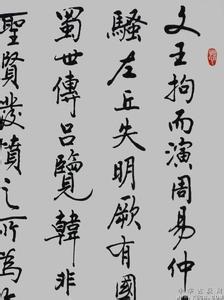 文王拘而演周易仲
騷左丘失明厥有國
蜀世傳呂覽韓非
聖賢發憤之所為